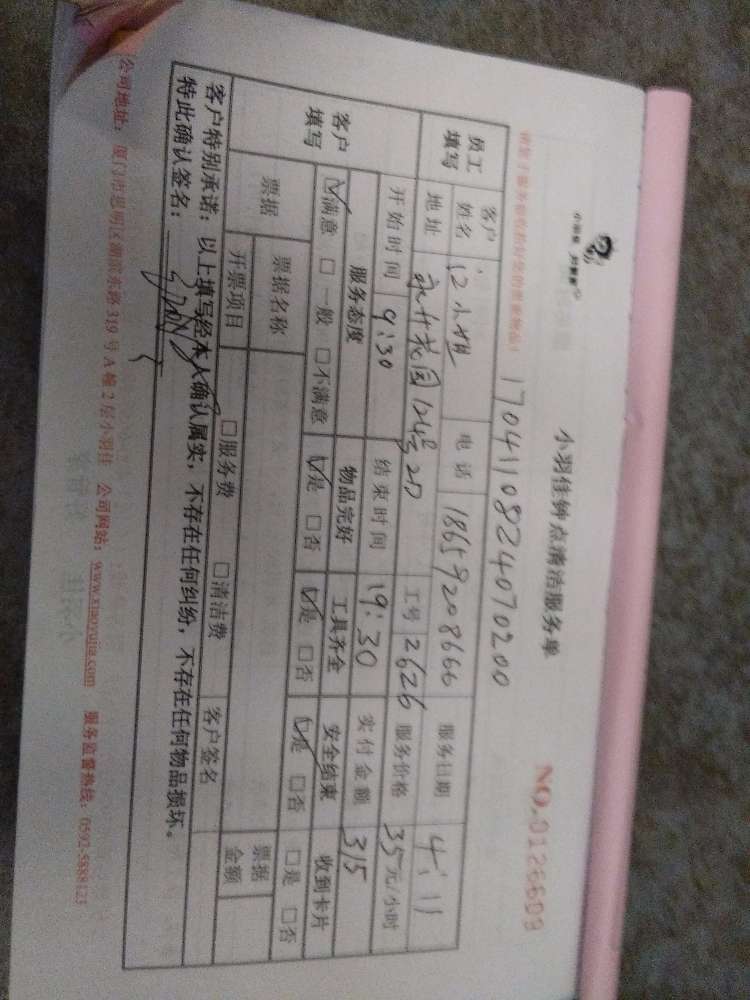 小羽佳 好管家
小羽佳钟点清洁服务单
NO.0126609
1704110824070200
员工填写 客户姓名 江小姐 电话 18659208666 服务日期 4.11
地址 永升花园124号2D 工号 2626 服务价格 35元/小时
开始时间 9:30 结束时间 19:30 实付金额 315
客户填写 服务态度 物品完好 工具齐全 安全结束 收到卡片
☑满意 □一般 □不满意 ☑是 □否 ☑是 □否 ☑是 □否 □是 □否
票据 票据名称 票据金额
开票项目 □服务费 □清洁费 客户签名
客户特别承诺：以上填写经本人确认属实，不存在任何纠纷，不存在任何物品损坏。
特此确认签名：
公司地址：厦门市思明区湖滨东路319号A幢2层小羽佳 公司网站：www.xiaoyujia.com 服务监督热线：0592-5888123